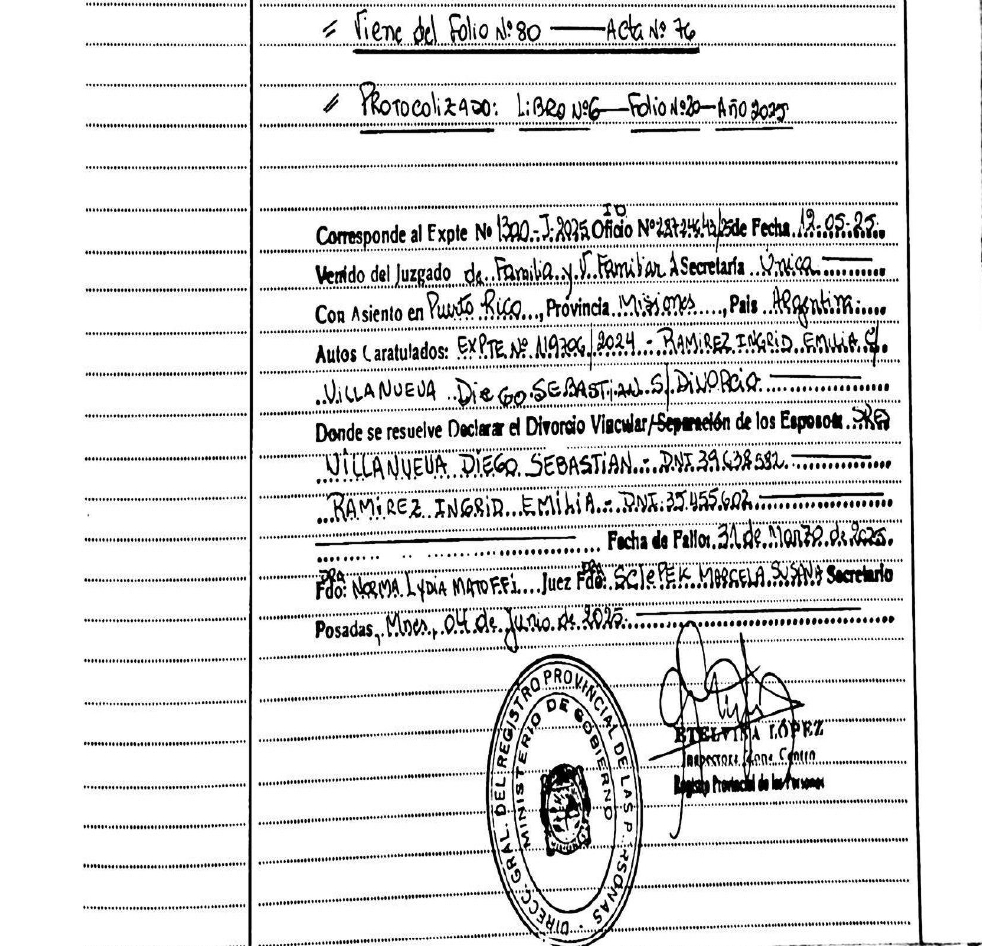 〃 Viene del Folio Nº 80 — Acta Nº 76
〃 PROTOCOLIZADO: LIBRO Nº6 — Folio Nº20 — AÑO 2025
Corresponde al Expte Nº 1320.-J-2025 ID Oficio Nº 28724643/25 de Fecha 12-05-25.
Venido del Juzgado de Familia y V. Familiar 1 Secretaría Única
Con Asiento en Puerto Rico, Provincia Misiones, Pais Argentina.
Autos Caratulados: EXPTE Nº 119706/2024 - RAMIREZ INGRID EMILIA C/
VILLANUEVA DIEGO SEBASTIAN S/ DIVORCIO
Donde se resuelve Declarar el Divorcio Vincular/Separación de los Esposos SRES
VILLANUEVA DIEGO SEBASTIAN - DNI 39.638.582.
RAMIREZ INGRID EMILIA - DNI 35.455.602
Fecha de Fallo: 31 de Marzo de 2025.
Fdo: DRA NORMA LYDIA MATOFFI Juez Fdo: DRA SCIEPEK MARCELA SUSANA Secretario
Posadas, Mnes, 04 de Junio de 2025.
DIRECC. GRAL. DEL REGISTRO PROVINCIAL DE LAS PERSONAS
MINISTERIO DE GOBIERNO
ETELVINA LÓPEZ
Inspectora Zona Centro
Registro Provincial de las Personas